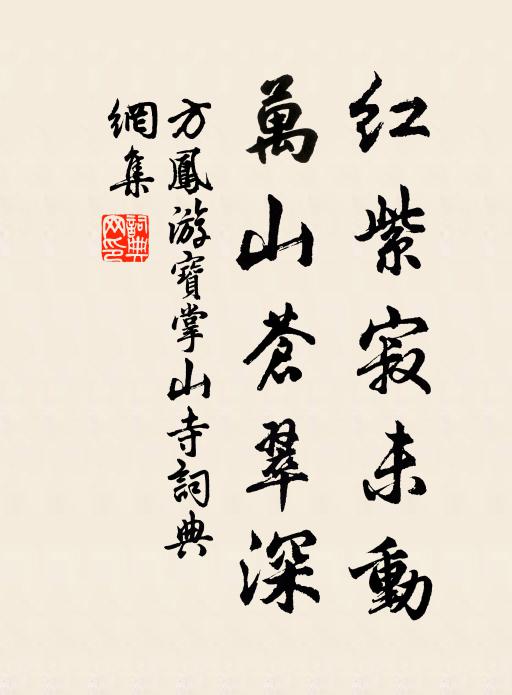 紅紫寂未動
萬山蒼翠深
方鳳游寶掌山寺詞典
網集
詞典網印